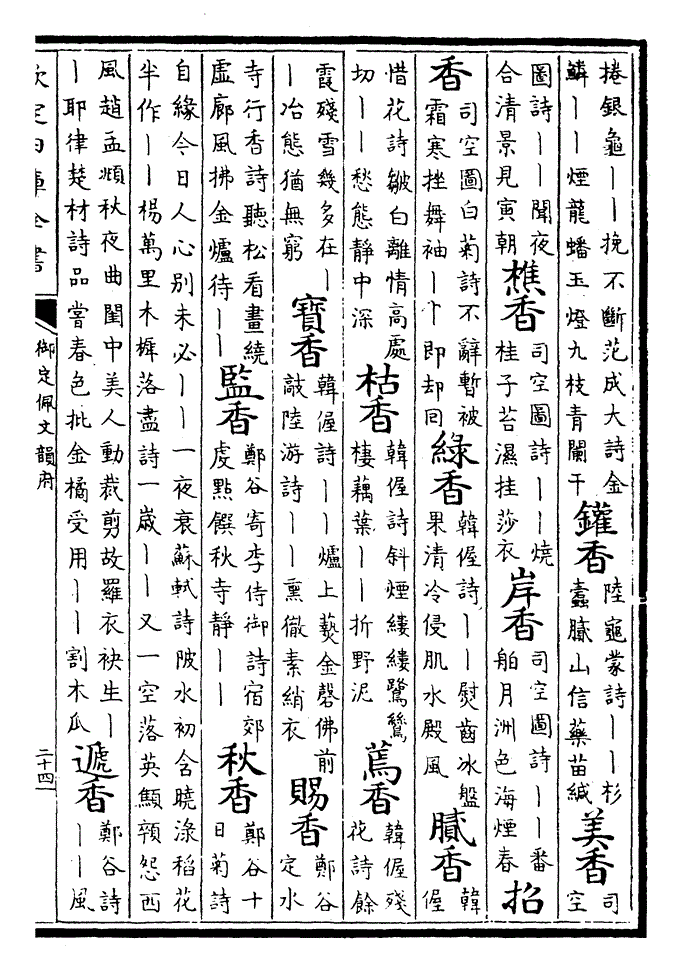 捲銀龜｜｜挽不斷范成大詩金
鱗｜｜煙龍蟠玉燈九枝青闌干
鑵香
陸龜蒙詩｜｜杉
蠹膩山信藥苗緘
美香
司
空
圖詩｜｜聞夜
合清景見寅朝
樵香
司空圖詩｜｜燒
桂子苔濕挂莎衣
岸香
司空圖詩｜｜番
舶月洲色海煙春
招
香
司空圖白菊詩不辭暫被
霜寒挫舞袖｜｜即却回
綠香
韓偓詩｜｜熨齒冰盤
果清冷侵肌水殿風
膩香
韓
偓
惜花詩皺白離情高處
切｜｜愁態靜中深
枯香
韓偓詩斜煙縷縷鷺鷥
棲藕葉｜｜折野泥
蔫香
韓偓殘
花詩餘
霞殘雪幾多在｜
｜冶態猶無窮
寶香
韓偓詩｜｜爐上爇金磬佛前
敲陸游詩｜｜熏徹素綃衣
賜香
鄭谷
定水
寺行香詩聽松看畫繞
虛廊風拂金爐待｜｜
監香
鄭谷寄李侍御詩宿郊
虔點饌秋寺靜｜｜
秋香
鄭谷十
日菊詩
自緣今日人心別未必｜｜一夜衰蘇軾詩陂水初含曉淥稻花
半作｜｜楊萬里木樨落盡詩一嵗｜｜又一空落英顠顙怨西
風趙孟頫秋夜曲閨中美人動裁剪故羅衣袂生｜
｜耶律楚材詩品嘗春色批金橘受用｜｜割木瓜
遞香
鄭谷詩
｜｜風
欽定四庫全書
御定佩文韻府
二十四